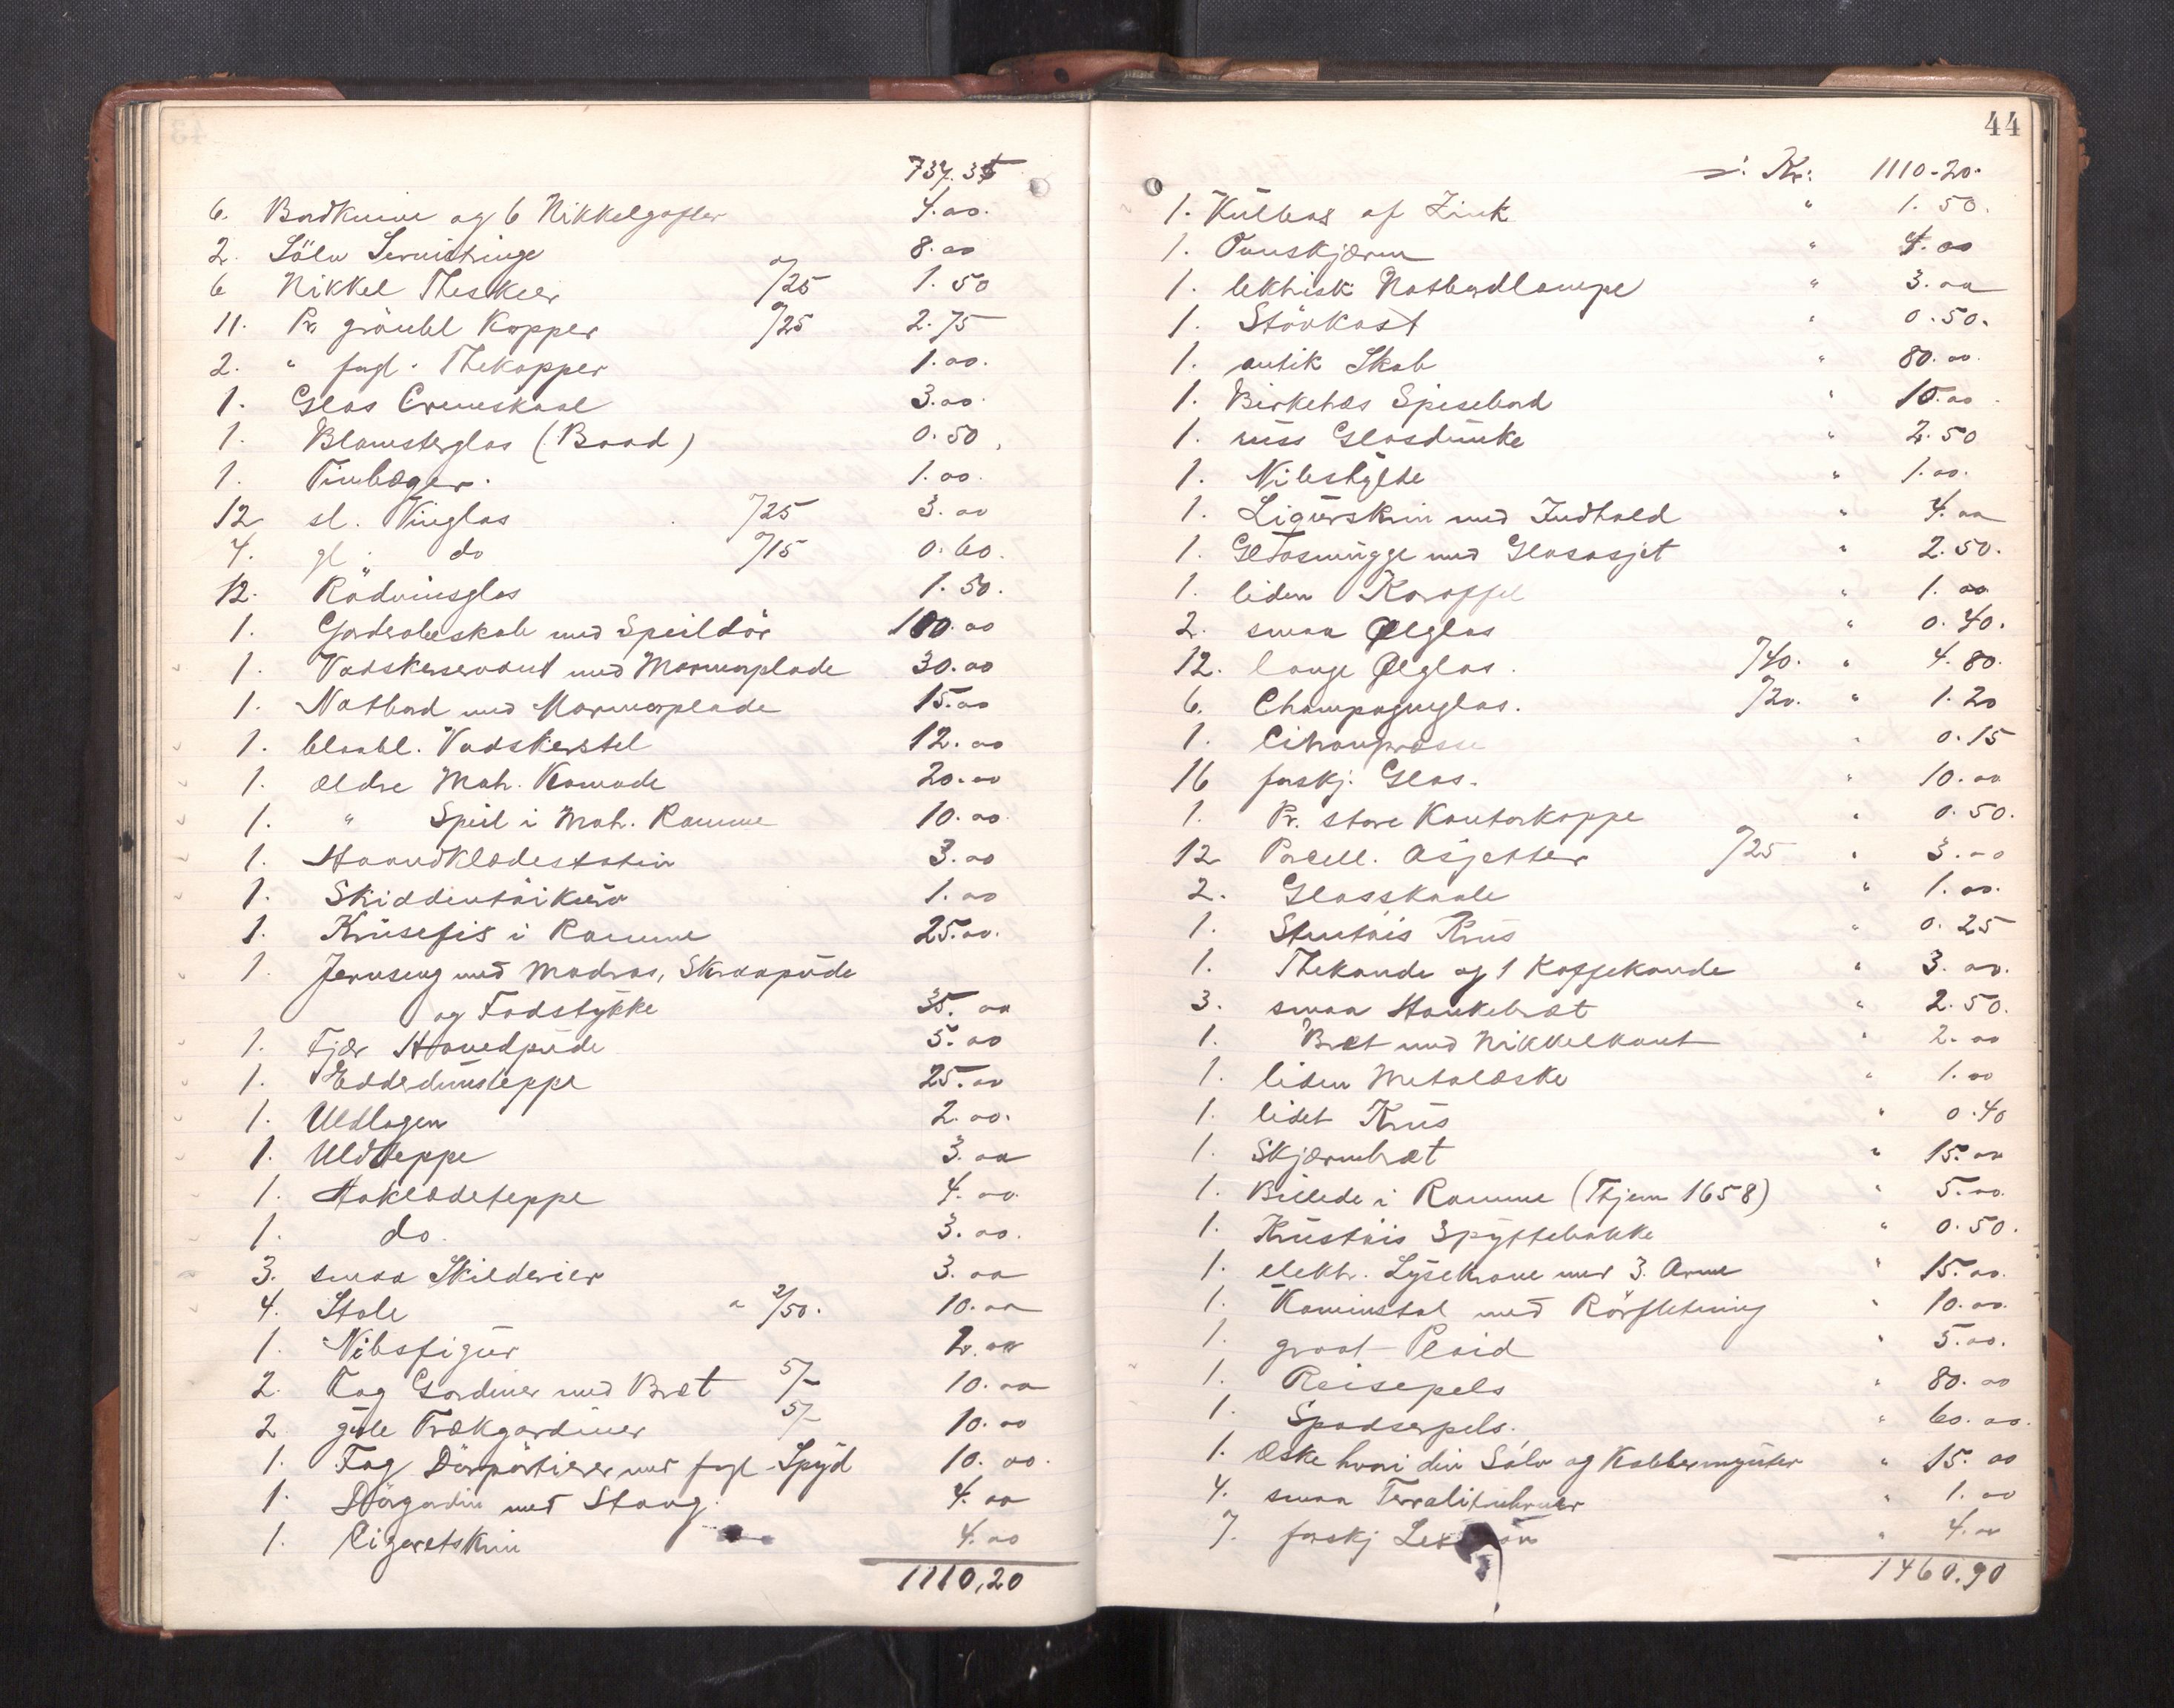 737.35
6. Bordknive og 6 Nikkelgafler 4.00.
2. Sölv Servietringe 8.00
6 Nikkel Theskeer "/25 1.50
11. Pr. gröubl Kopper "/25 2.75
2. " fugl. Thekopper 1.00.
1. Glas Cremeskaal 3.00
1. Blomsterglas (Baad) 0.50
1. Tinbæger. 1.00.
12 sl. Vinglas "/25 3.00
4. gl " do "/15 0.60.
12. Rödvinsglas 1.50.
1. Garderobeskab med Speildör 100.00
1. Vadskeservant med Marmorplade 30.00
1. Natbord med Marmorplade 15.00
1. blaabl. Vadskestel 12.00
1. ældre Mah. Komode 20.00
1. " Speil i Mah. Ramme 10.00
1. Haandklædestativ 3.00
1. Skiddentöikurv 1.00
1. Krusefix i Ramme 25.00.
1. Jernseng med Madras, Skraapude
og Fodstykke 35.00
1. Fjær Hovedpude 5.00
1. Edderdunsteppe 25.00
1. Uldlagen 2.00.
1. Uldteppe 3.00
1. Hæklædeteppe 4.00.
1. do. 3.00.
3. smaa Skilderier 3.00
4. Stole a 2/50. 10.00
1. Nibsfigur 2.00
2. Fag Gardiner med Bræt 5/- 10.00
2 gule Trækgardiner 5/- 10.00
1. Fag Dörportierer med fugl Spyd 10.00.
1. Dörgardin med Stang. 4.00
1. Cigaretskrin 4.00
1110,20
44
Kr: 1110-20.
1. Kulkas af Zink " 1.50.
1. Ovnskjærm " 4.00
1. lektrisk Natbordlampe " 3.00
1. Stövkost " 0.50.
1. antik Skab " 80.00.
1. Birketræs Spisebord " 10.00
1. russ Glasdunke " 2.50
1. Nibshylde " 1.00.
1. Liqurskrin med Indhold " 4.00
1. Glasmugge med Glasasjet " 2.50.
1. liden Karaffel " 1.00
2. smaa Ølglas " 0.40.
12. lange Ølglas. "/40. " 4.80.
6. Champagneglas. "/20. " 1.20
1. Citronpresse " 0.15
16 forskj. Glas. " 10.00
1. Pr. store Kontorkoppe " 0.50.
12 Porcell. Asjetter "/25 " 3.00
2. Glasskaale " 1.00.
1. Stentöis Krus " 0.25
1. Thekande og 1 Kaffekande " 3.00.
3. smaa Hankebræt " 2.50.
1. Bræt med Nikkelkant " 2.00
1. liden Metalæske " 1.00
1. lidet Krus " 0.40
1. Skjærmbræt " 15.00
1. Billede i Ramme (Thjem 1658) " 5.00.
1. Krustöis Spyttebakke " 0.50.
1. elektr. Lysekrone med 3. Arme " 15.00.
1. Kaminstol med Rörfletning " 10.00.
1. graat Plaid " 5.00.
1. Reisepels " 80.00
1. Spadserpels. " 60.00.
1. Æske hvori div Sölv og Kobbermynter " 15.00
4. smaa " 1.00
7. forskj " 4.00
1460.90